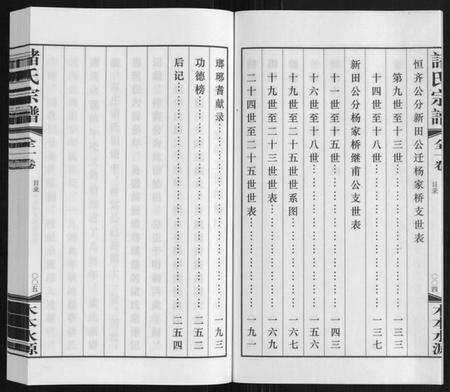 諸氏宗譜
全一卷
目录
〇〇四
木本水源
恒齐公分新田公迁杨家桥支世表
第九世至十三世……一三三
十四世至十八世……一三七
新田公分杨家桥继甫公支世表
十一世至十五世……一四三
十六世至十八世……一五六
十九世至二十五世世系图……一六七
十九世至二十三世世表……一六九
二十四世至二十五世世表……一九一
瑯琊耆献录……一九三
功德榜……二五二
后记……二五四
諸氏宗譜
全一卷
目录
〇〇五
木本水源